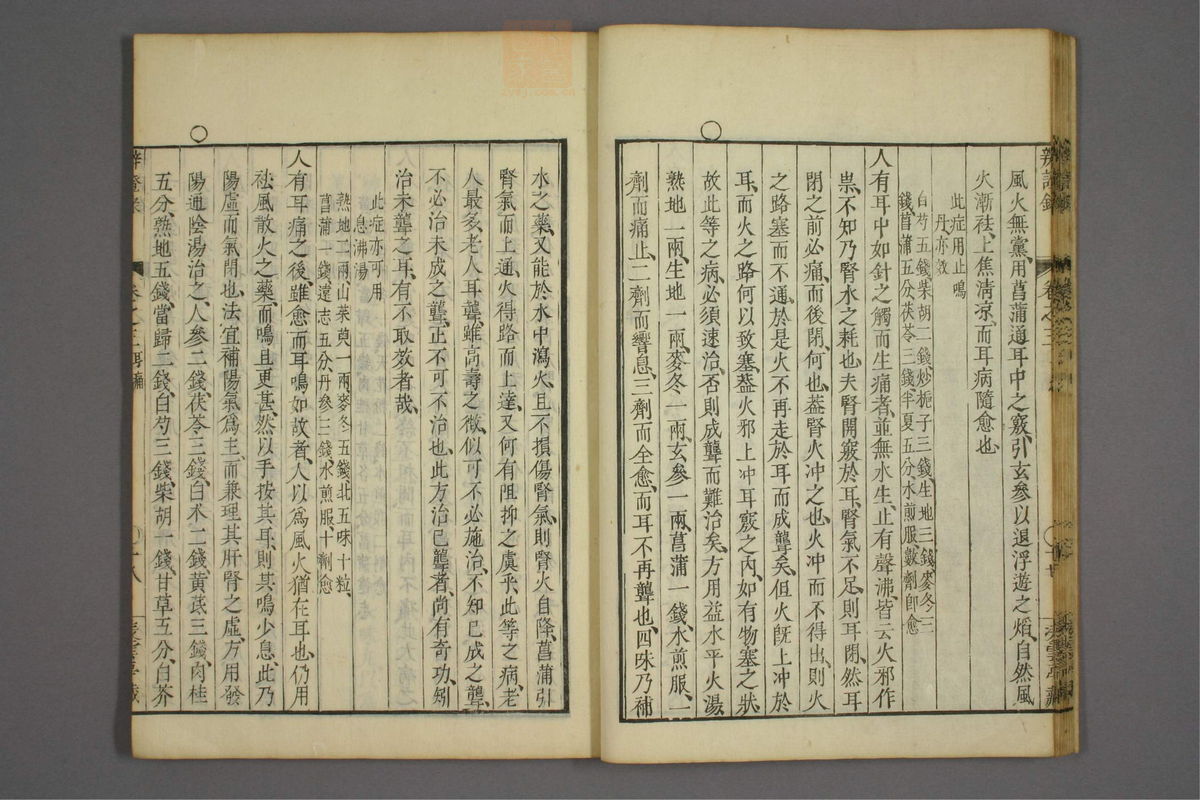 風火無黨、用菖蒲通耳中之竅、引玄參以退浮遊之焰、自然風
火漸祛、上焦清凉、而耳病隨愈也、
此症用止鳴
丹亦效
白芍五錢柴胡二錢炒梔子三錢生地三錢麥冬三
錢菖蒲五分茯苓三錢半夏五分水煎服數劑即愈
人有耳中如針之觸而生痛者、並無水生、止有聲沸、皆云火邪作
祟、不知乃腎水之耗也、夫腎開竅於耳、腎氣不足、則耳閉、然耳
閉之前必痛、而後閉、何也、葢腎火冲之也、火冲而不得出、則火
之路塞而不通、於是火不再走於耳而成聾矣、但火既上冲於
耳、而火之路何以致塞、葢火邪上冲耳竅之内、如有物塞之狀、
故此等之病、必須速治、否則成聾而難治矣、方用益水平火湯
熟地一兩、生地一兩、麥冬一兩、玄參一兩、菖蒲一錢、水煎服、一
劑而痛止、二劑而響息、三劑而全愈、而耳不再聾也、四味乃補
水之藥、又能於水中瀉火、且不損傷腎氣、則腎火自降、菖蒲引
腎氣而上通、火得路而上達、又何有阻抑之虞乎、此等之病、老
人最多、老人耳聾、雖高壽之徵、似可不必施治、不知已成之聾、
不必治、未成之聾、正不可不治也、此方治已聾者、尚有奇功、矧
治未聾之耳、有不取效者哉、
此症亦可用
息沸湯
熟地二兩山茱萸一兩麥冬五錢北五味十粒
菖蒲一錢遠志五分丹參三錢水煎服十劑愈
人有耳痛之後、雖愈而耳鳴如故者、人以爲風火猶在耳也、仍用
祛風散火之藥、而鳴且更甚、然以手按其耳、則其鳴少息、此乃
陽虛而氣閉也、法宜補陽氣爲主、而兼理其肝腎之虛、方用發
陽通陰湯治之、人參二錢、茯苓三錢、白朮二錢、黃芪三錢、肉桂
五分、熟地五錢、當歸二錢、白芍三錢、柴胡一錢、甘草五分、白芥